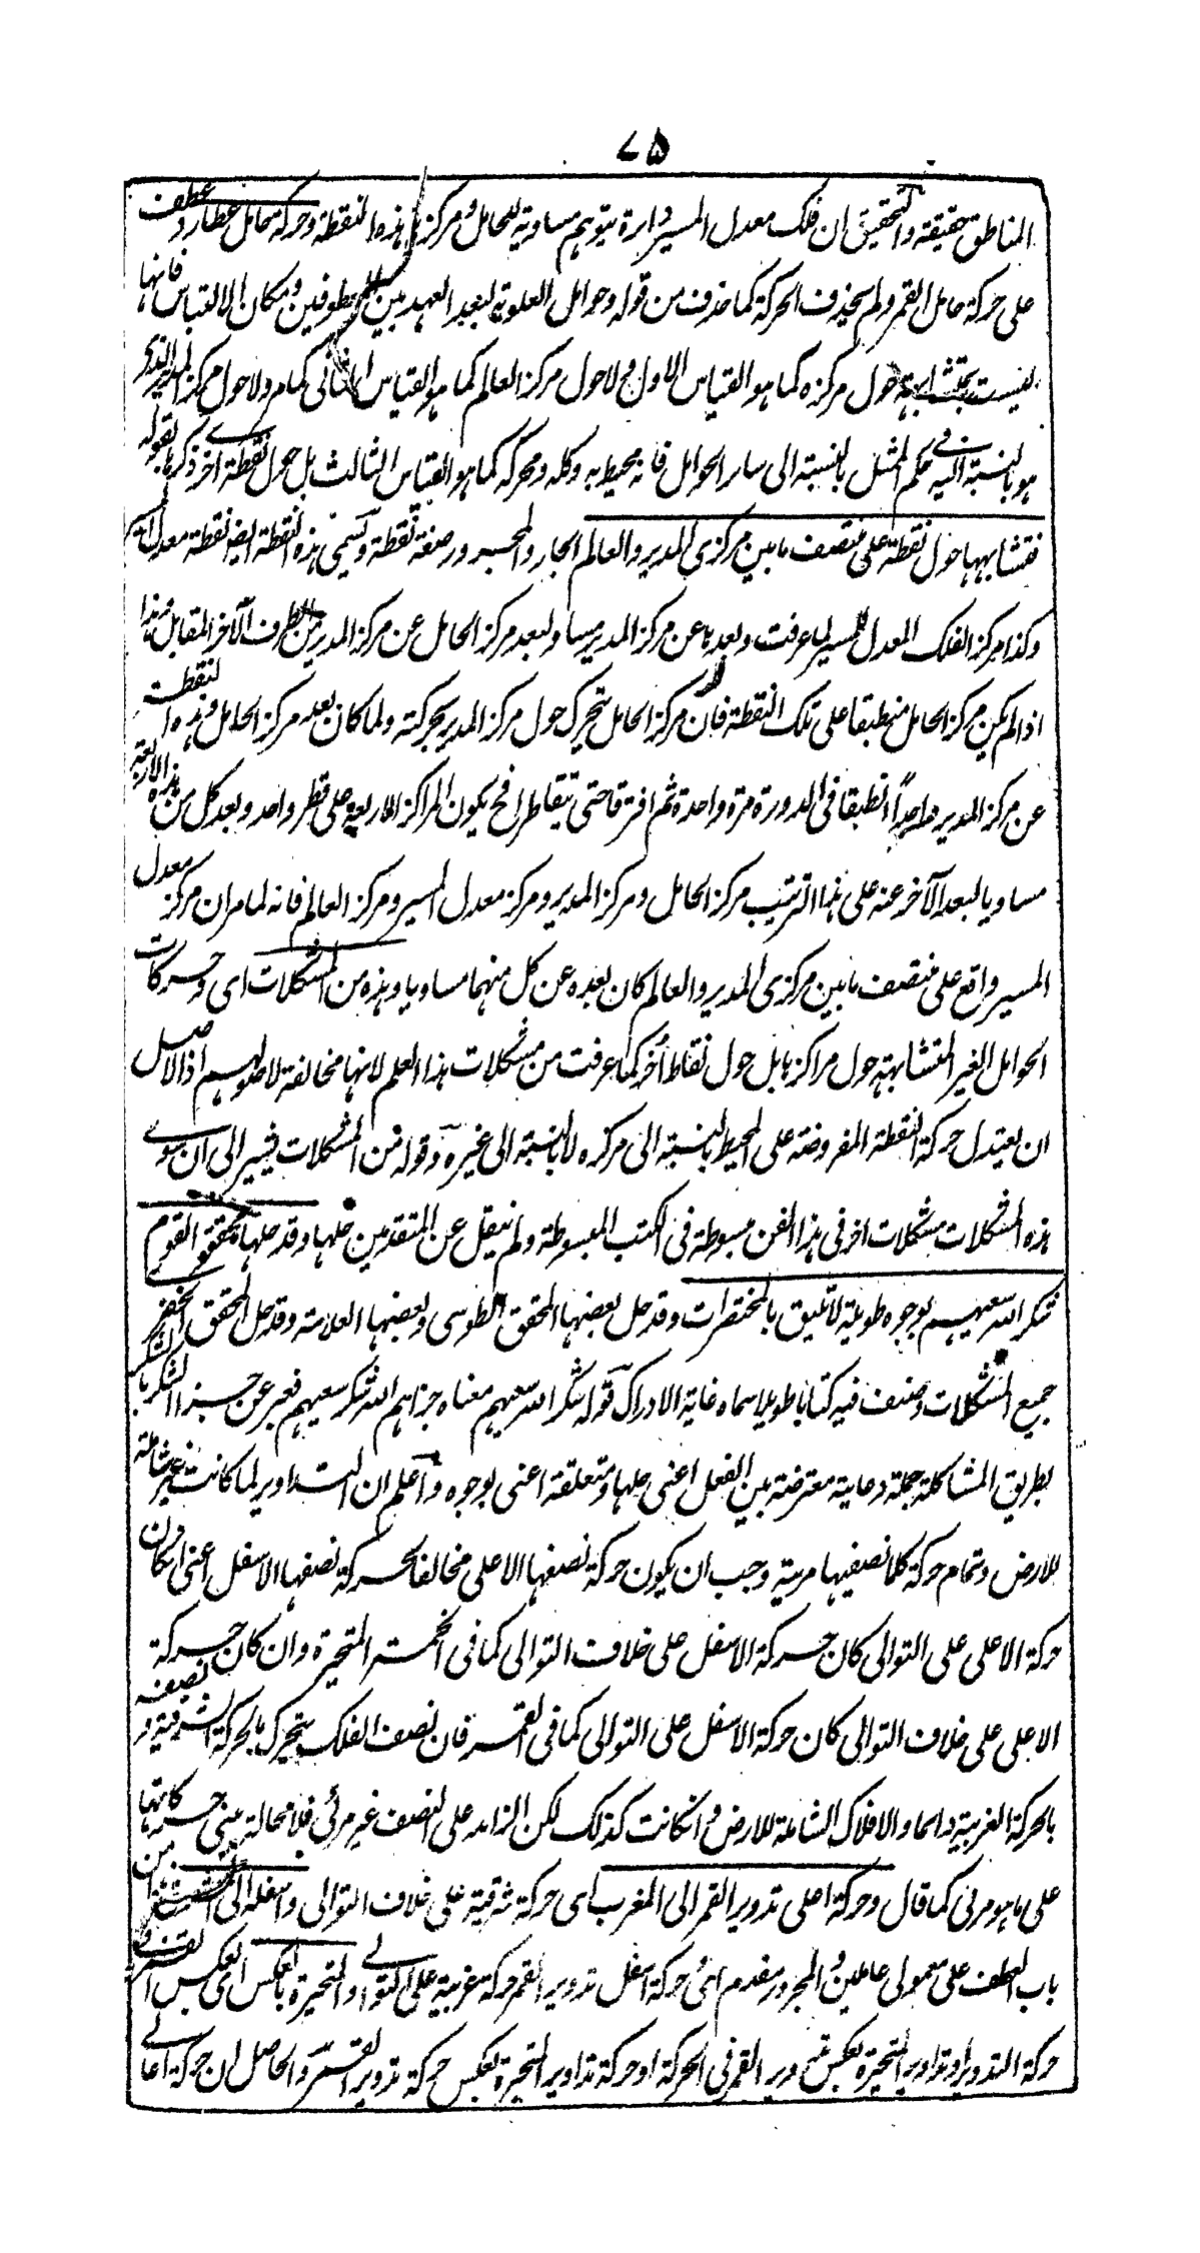 ٧٥
المناطق حقيقة والتحقيق ان فلك معدل المسير دائرة يتوهم مساوية للحامل ومركزها هذه النقطة وحركة حامل عطارد عطف
على حركة حامل القمر ولم يحذف الحركة كما حذف من قوله وحوامل العلوية لبعد العهد بين المعطوفين ومكان الالتباس فانها
ليست بمتشابهة حول مركزه كما هو القياس الاول ولا حول مركز العالم كما هو القياس الثانى كما مر ولا حول مركز المدير الذى
هو بالنسبة اليه فى حكم الممثل بالنسبة الى سائر الحوامل فانه محيط به وكله ومحركه كما هو القياس الثالث بل حول نقطة اخرى ذكرها بقوله
فتشابهها حول نقطة على منتصف ما بين مركزى المدير والعالم الجار والمجرور صفة نقطة وتسمى هذه النقطة ايضا نقطة معدل المسير
وكذا مركز الفلك المعدل للمسير لما عرفت وبعدها عن مركز المدير مساو لبعد مركز الحامل عن مركز المدير من الطرف الآخر المقابل هذا
اذا لم يكن مركز الحامل منطبقا على تلك النقطة فان مركز الحامل يتحرك حول مركز المدير بحركته ولما كان بعد مركز الحامل وهذه النقطة
عن مركز المدير واحداً انطبقا فى الدورة مرة واحدة ثم افترقا حتى يتقاطرا فح يكون المراكز الاربعة على قطر واحد وبعد كل من هذه الاربعة
مساويا لبعد الآخر عنه على هذا الترتيب مركز الحامل ومركز المدير ومركز معدل المسير ومركز العالم فانه لما مر ان مركز معدل
المسير واقع على منتصف ما بين مركزى المدير والعالم كان بعده عن كل منهما مساويا وهذه من المشكلات اى وحركات
الحوامل الغير المتشابهة حول مراكزها بل حول نقاط اُخر كما عرفت من مشكلات هذا العلم لانها مخالفة لاصولهم اذ الاصل
ان يعتدل حركة النقطة المفروضة على المحيط بالنسبة الى مركزه لا بالنسبة الى غيره وقوله من المشكلات يشير الى ان سوى
هذه المشكلات مشكلات اخر فى هذا الفن مبسوطة فى الكتب المبسوطة ولم ينقل عن المتقدمين حلها وقد حلها محققو القوم
شكر الله سعيهم بوجوه طويلة لا تليق بالمختصرات وقد حل بعضها المحقق الطوسى وبعضها العلامة وقد حل المحقق الخفرى
جميع المشكلات وصنف فيه كتابا طويلا سماه غاية الادراك قوله شكر الله سعيهم معناه جزاهم الله شكر سعيهم فعبر عن جزاء الشكر بالشكر
بطريق المشاكلة جملة دعاية معترضة بين الفعل اعنى حلها ومتعلقه اعنى بوجوه واعلم ان التداوير لما كانت غير شاملة
للارض وتمام حركة كلا نصفيها مرئية وجب ان يكون حركة نصفها الاعلى مخالفا لحركة نصفها الاسفل اعنى ان كان
حركة الاعلى على التوالى كان حركة الاسفل على خلاف التوالى كما فى الخمسة المتحيرة وان كان حركة
الاعلى على خلاف التوالى كان حركة الاسفل على التوالى كما فى القمر فان نصف الفلك يتحرك بالحركة الشرقية ونصفه
بالحركة الغربية دائما والافلاك الشاملة للارض وان كانت كذلك لكن الزائد على النصف غير مرئى فلا محالة يبنى حركاتها
على ما هو مرئى كما قال وحركة اعلى تدوير القمر الى المغرب اى حركة شرقية على خلاف التوالى واسفله الى المشرق من
باب العطف على معمولى عاملين والمجرور مقدم اى حركة اسفل تدوير القمر حركة غربية على التوالى والمتحيرة بالعكس اى بعكس القمر
حركة التدوير او تداوير المتحيرة بعكس تدوير القمر فى الحركة او حركة تداوير المتحيرة بعكس حركة تدوير القمر والحاصل ان حركة اعالى